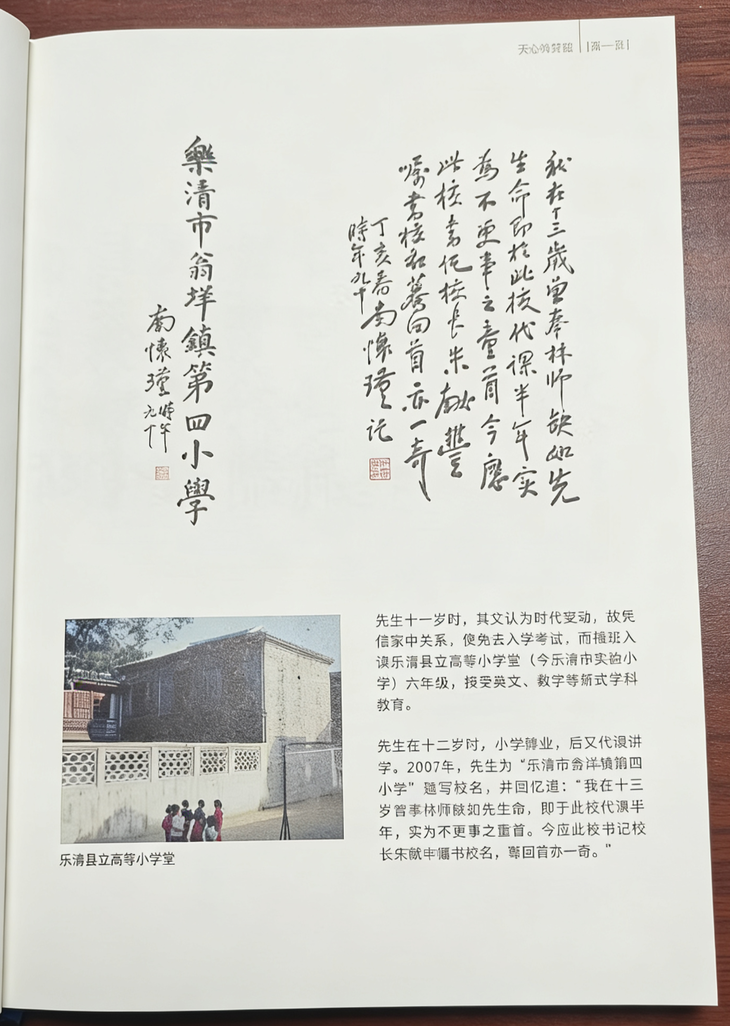 我在十三歲曾奉林师缺如先
生命即於此校代課半年实
為不更事之童首今應
此校書记校长朱献豐
嘱書校名蓦回首亦一奇
丁亥春南懷瑾记
時年九十
樂清市翁垟鎮第四小學
南懷瑾時年
九十
先生十一岁时，其父认为时代变动，故凭
信家中关系，使免去入学考试，而插班入
读乐清县立高等小学堂（今乐清市实验小
学）六年级，接受英文、数字等新式学科
教育。
先生在十二岁时，小学毕业，后又代课讲
学。2007年，先生为“乐清市翁洋镇第四
小学”题写校名，并回忆道：“我在十三
岁曾奉林师缺如先生命，即于此校代课半
年，实为不更事之童首。今应此校书记校
长朱献 嘱书校名，蓦回首亦一奇。”
乐清县立高等小学堂